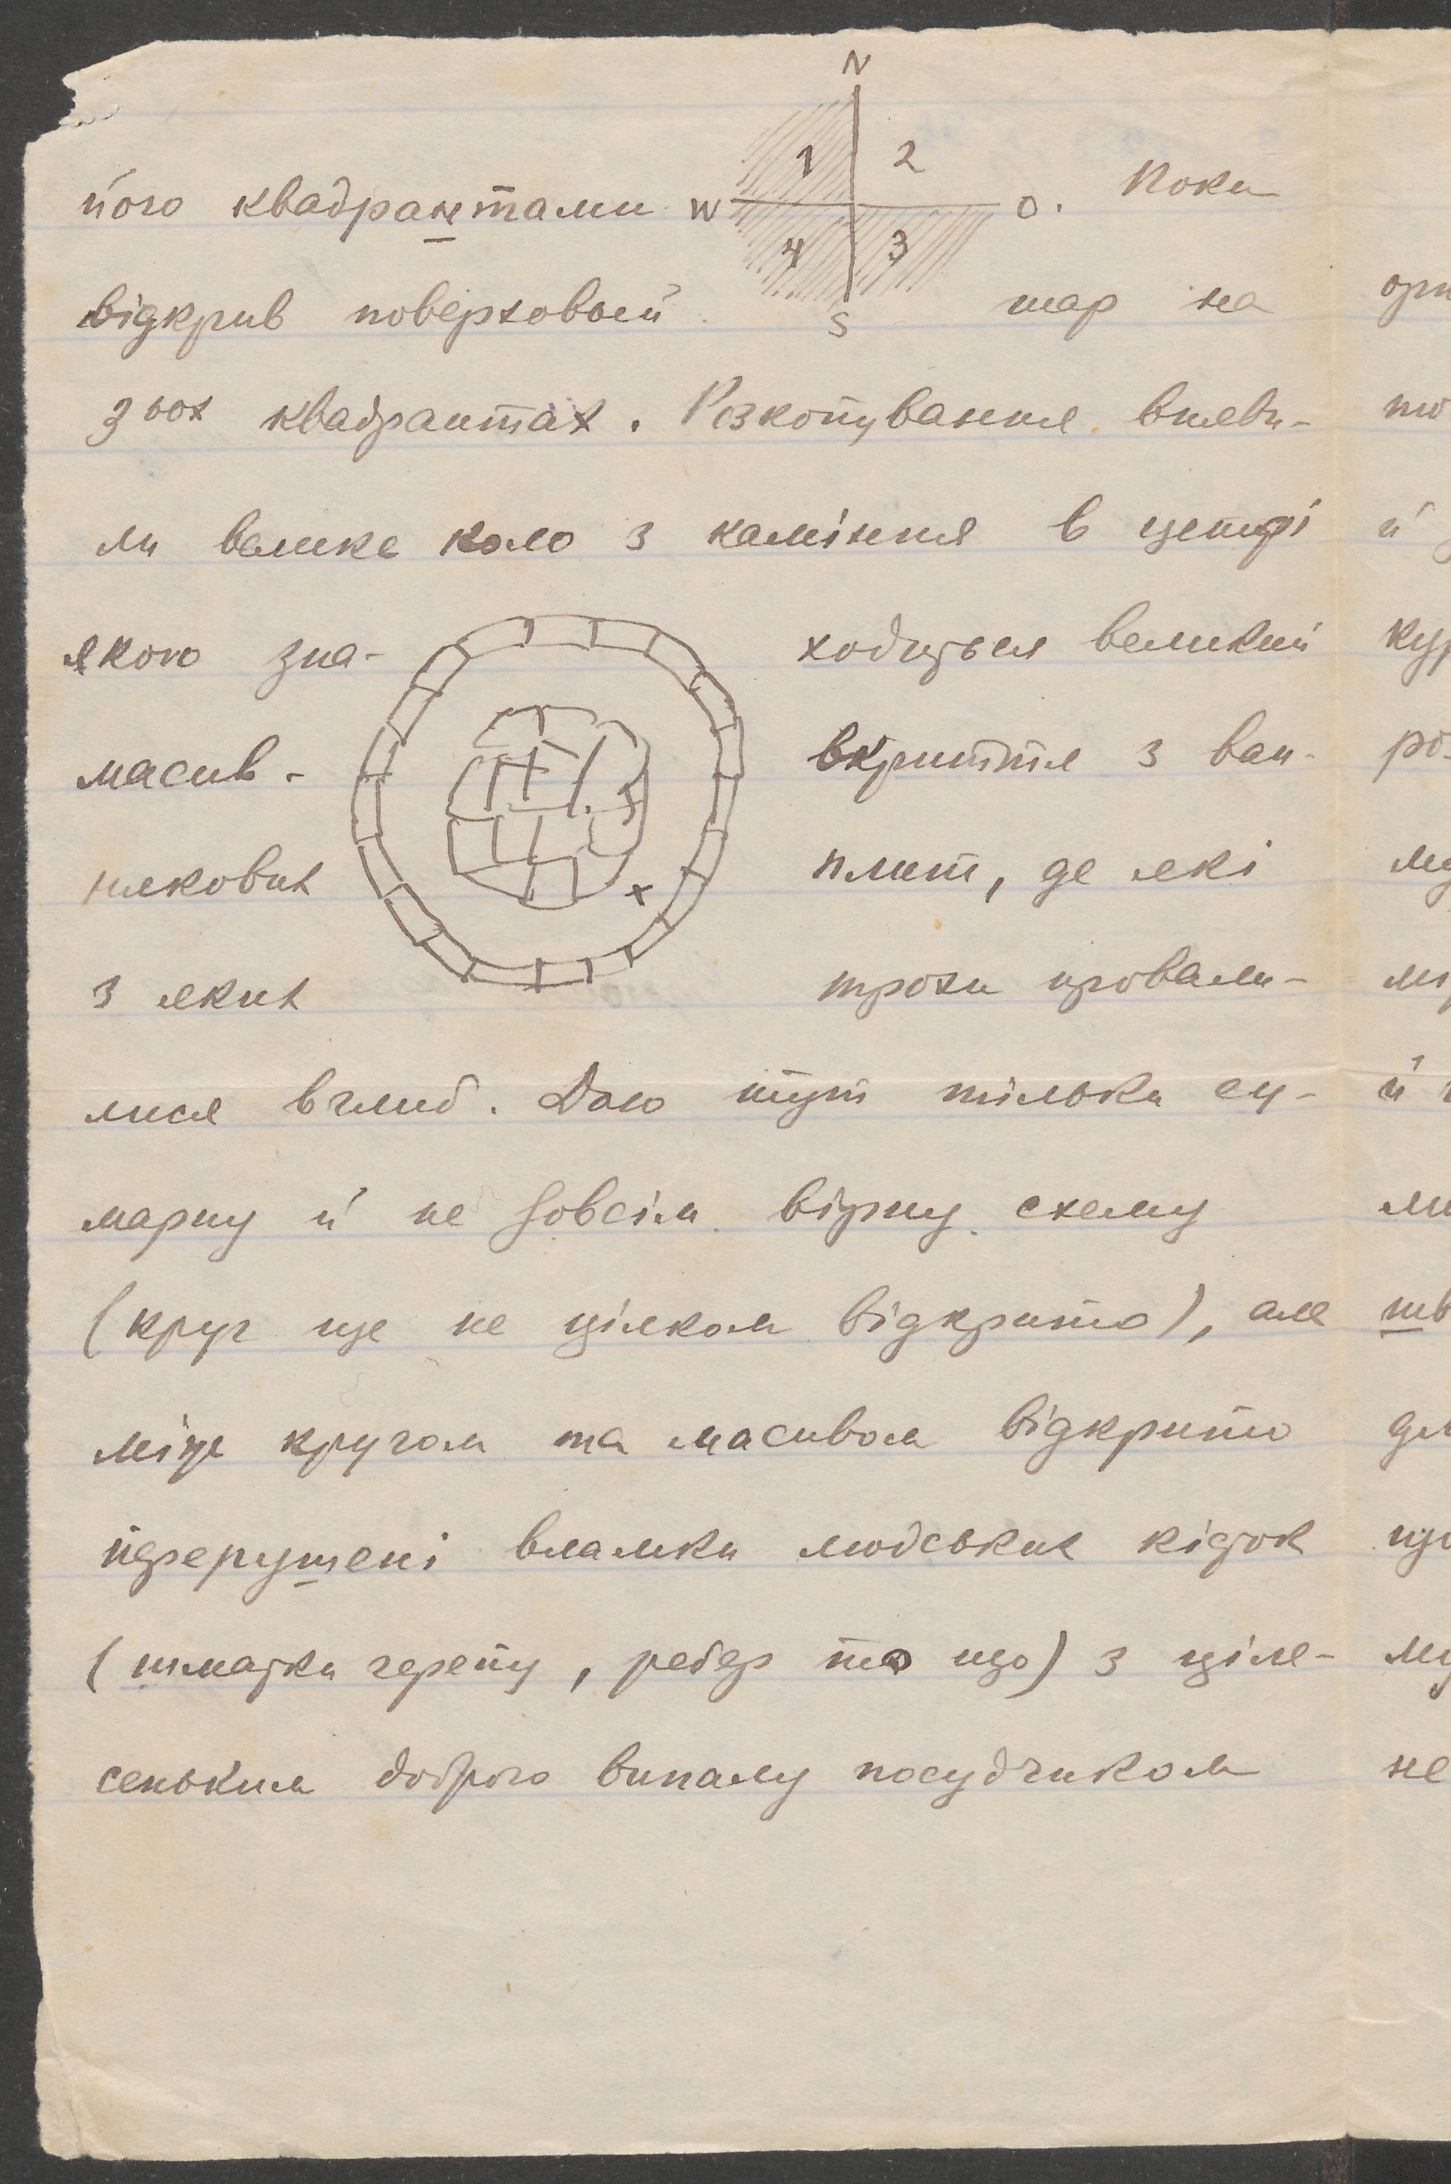 N
його квадрантами W 1 2 O. Поки
4 3
відкрив поверховий S шар на
3ьох квадрантах. Розкопування вияви-
ли велике коло з каміння в центрі
якого зна- ходиться великий
масив - вкриття з вап-
някових плит, де які
з яких трохи провали-
лися вглиб. Даю тут тільки су-
марну й не зовсім вірну схему
(круг ще не цілком відкрито), але
між кругом та масивом відкрито
вламки людських кісток
(шматки черепу, ребер то що) з ціле-
сеньким доброго випалу посудчиком